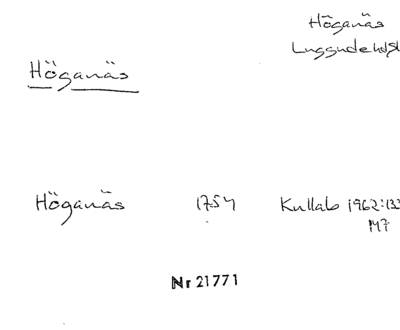 Höganäs
Luggude hd, Sk
Höganäs
Höganäs 1754 Kullab 1962:133
M7
Nr 21771